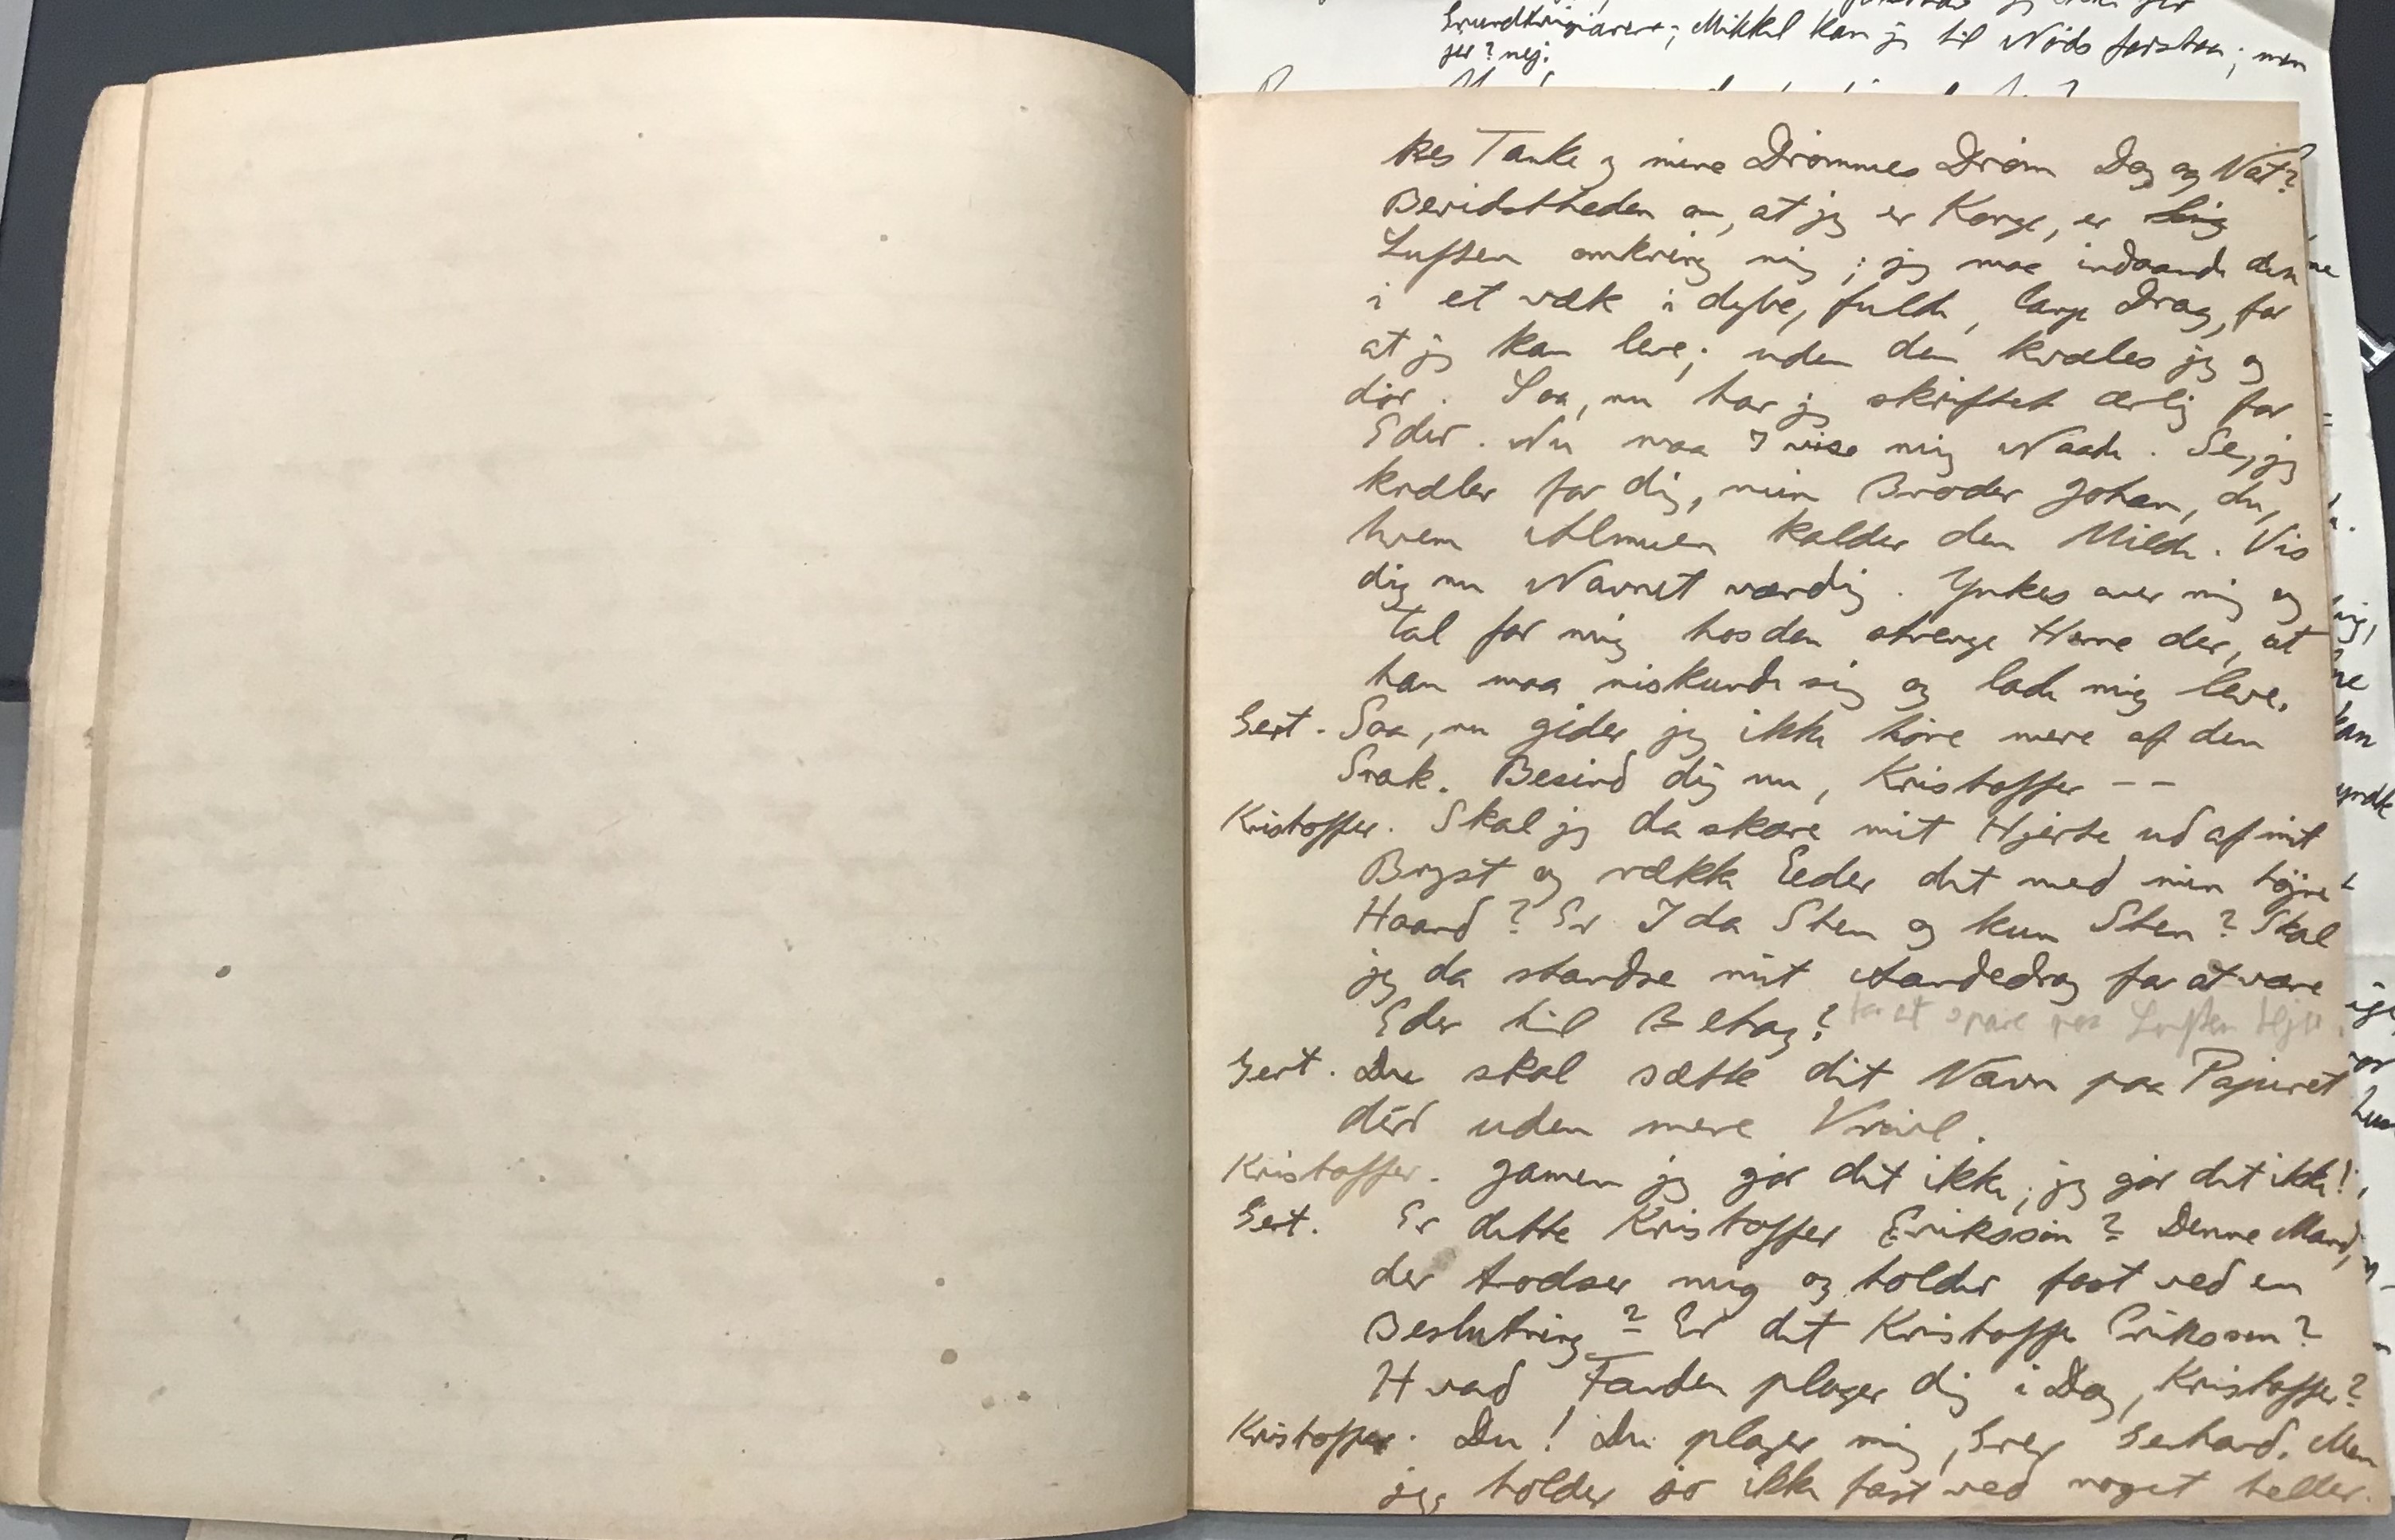 Grundtvigianere; Mikkel kan jeg til Nöds forstaa; men
jer? nej.
kes Tanke og mine Drömmes Dröm Dag og Nat?
Bevidstheden om, at jeg er Konge, er
Luften omkring mig; jeg maa indaande den
i et væk i dybe, fulde, lange Drag, for
at jeg kan leve; uden den kvæles jeg og
dör. Saa, nu har jeg skriftet ærlig for
Eder. Nu maa I vise mig Naade. Se, jeg
kræler for dig, min Broder Johan, du,
hvem Almuen kalder den Milde. Vis
dig nu Navnet værdig. Ynkes over mig og
tal for mig hos den strenge Herre der, at
han maa miskunde sig og lade mig leve.
Gert. Saa, nu gider jeg ikke höre mere af den
Snak. Besind dig nu, Kristoffer --
Kristoffer. Skal jeg da skære mit Hjerte ud af mit
Bryst og række Eeder det med min höjre
Haand? Er I da Sten og kun Sten? Skal
jeg da standse mit Aandedrag for at være
Eder til Behag? for at spare paa Luften
Gert. Du skal sætte dit Navn paa Papiret
dér uden mere Vrövl.
Kristoffer. Jamen jeg gör det ikke; jeg gör det ikke!
Gert. Er dette Kristoffer Erikssön? Denne Mand,
der trodser mig og holder fast ved en
Beslutning? Er det Kristoffer Erikssön?
Hvad Fanden plager dig i Dag, Kristoffer?
Kristoffer. Du! Du plager mig, Grev Gerhard. Men
jeg holder jo ikke fast ved noget heller.